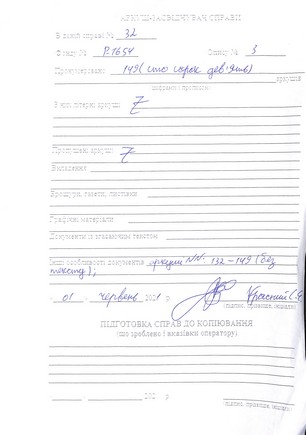 АРКУШ-ЗАСВІДЧУВАЧ СПРАВИ
В даній справі № 32
Фонду № Р.1654 Опису № 3
Пронумеровано 149 (сто сорок дев'ять) аркушів
цифрами і прописом
З них літерні аркуші Z
Пропущені аркуші Z
Вкладення
Брошури, газети, листівки
Графічні матеріали
Документи із згасаючим текстом
Інші особливості документів аркуші NN: 132-149 (без
тексту);
01 червень 2021 р.
(підпис, прізвище, ініціали)
ПІДГОТОВКА СПРАВ ДО КОПІЮВАННЯ
(що зроблено і вказівки оператору)
202 р.
(підпис, прізвище, ініціали)